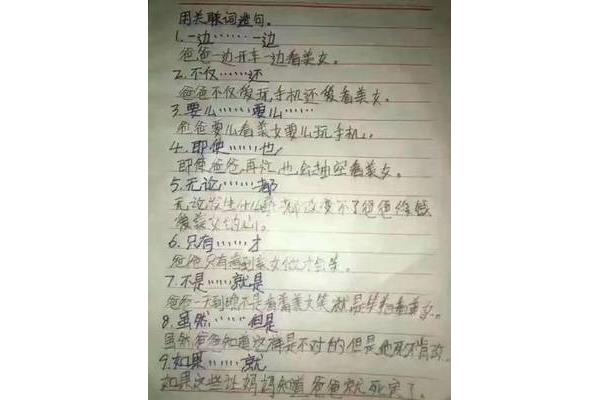 用关联词造句。
1.一边……一边
爸爸一边开车一边看美女。
2.不仅……还
爸爸不仅爱玩手机还爱看美女。
3.要么……要么……
爸爸要么看美女要么玩手机。
4.即使……也
即使爸爸再忙,也会抽空看美女。
5.无论……都
无论发生什么事都改变不了爸爸
爱美女的心。
6.只有……才
爸爸只有看到美女他才会笑。
7.不是……就是
爸爸一天到晚不是看着美女笑就是看着美女。
8.虽然……但是
虽然爸爸知道这样是不对的但是他死不肯改。
9.如果……就
如果这些让妈妈知道爸爸就死定了。